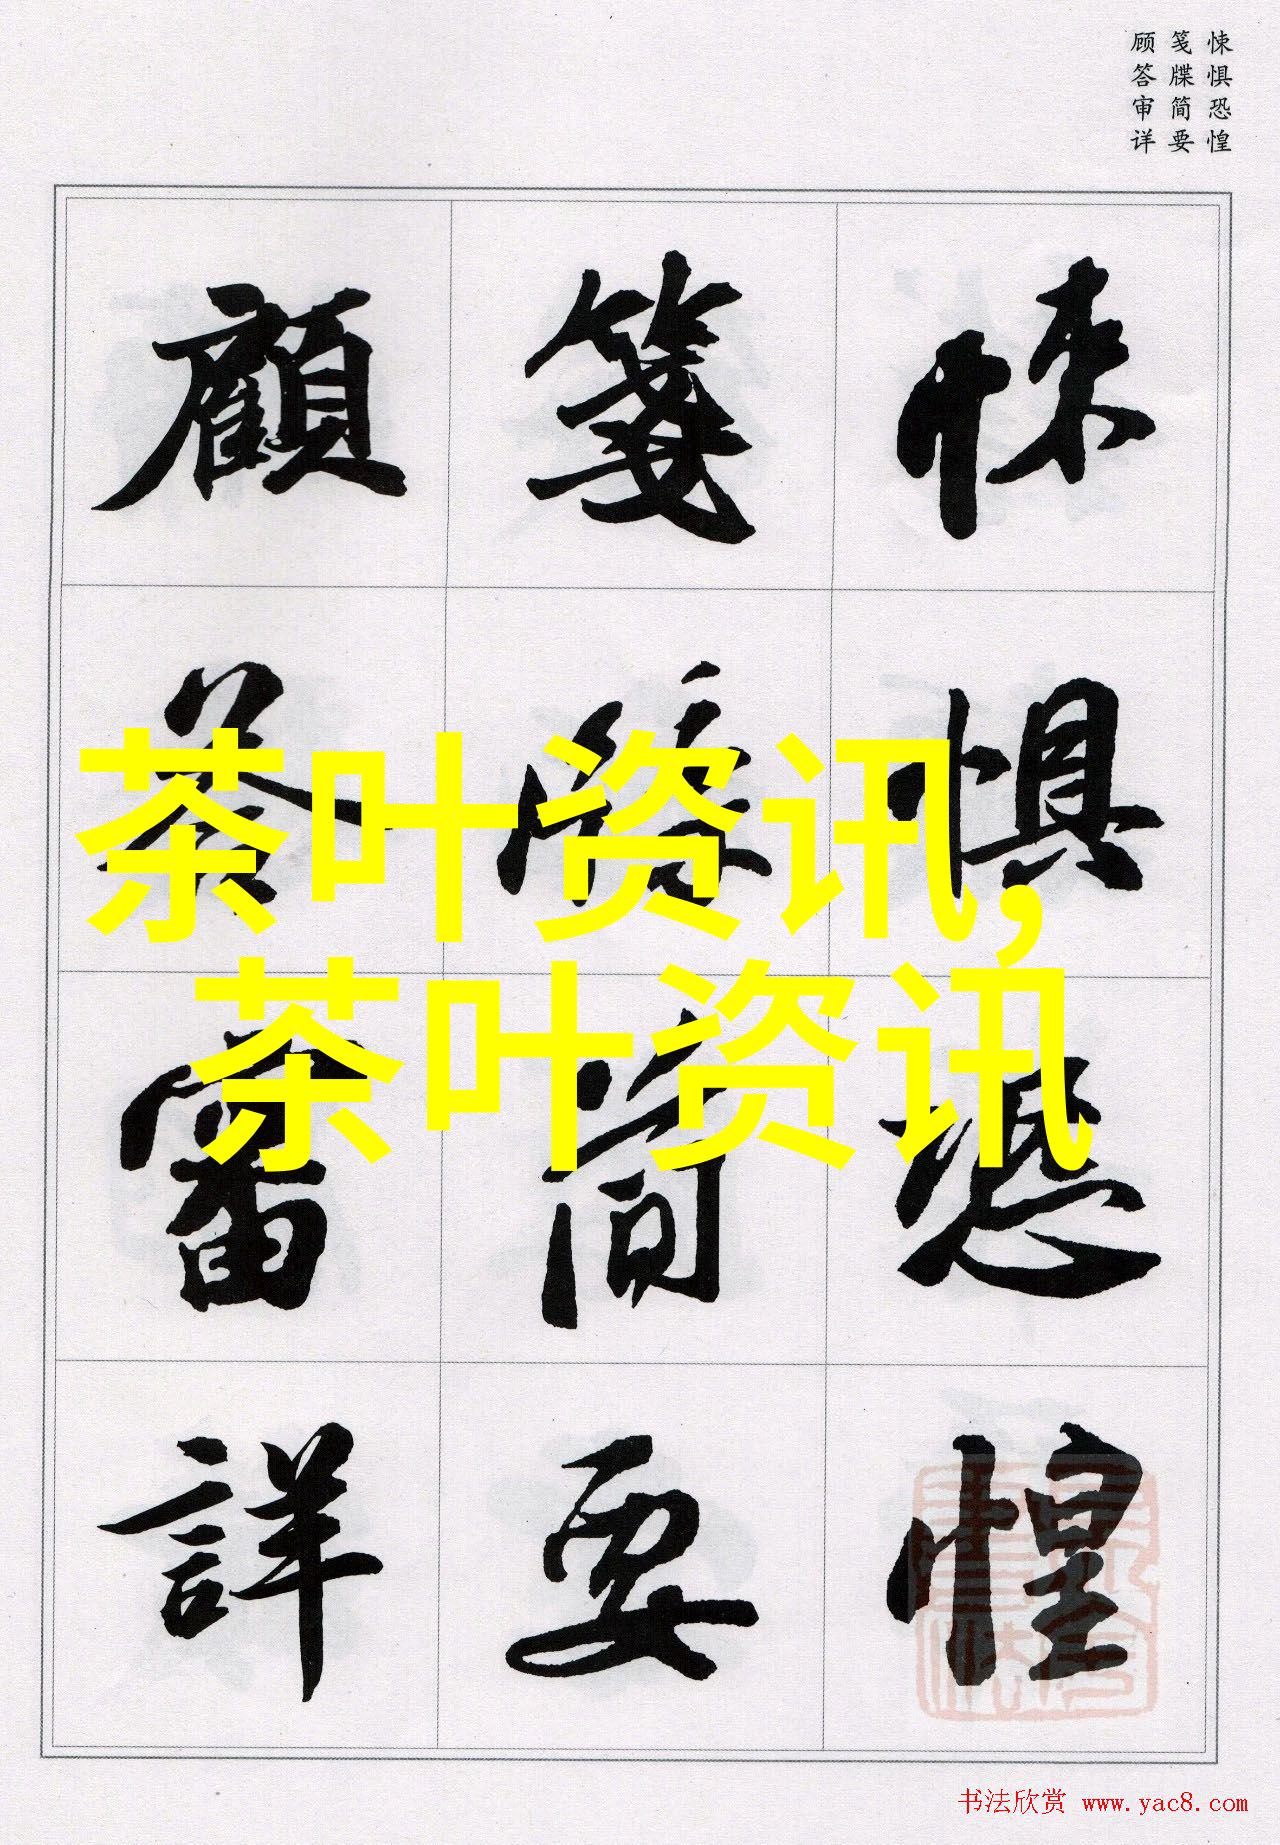 悚惧恐惶
笺牒简要
顾答审详
悚惧恐惶
笺牒简要
顧答審詳
茶叶资讯,
茶叶资讯
书法欣赏 www.yac8.com